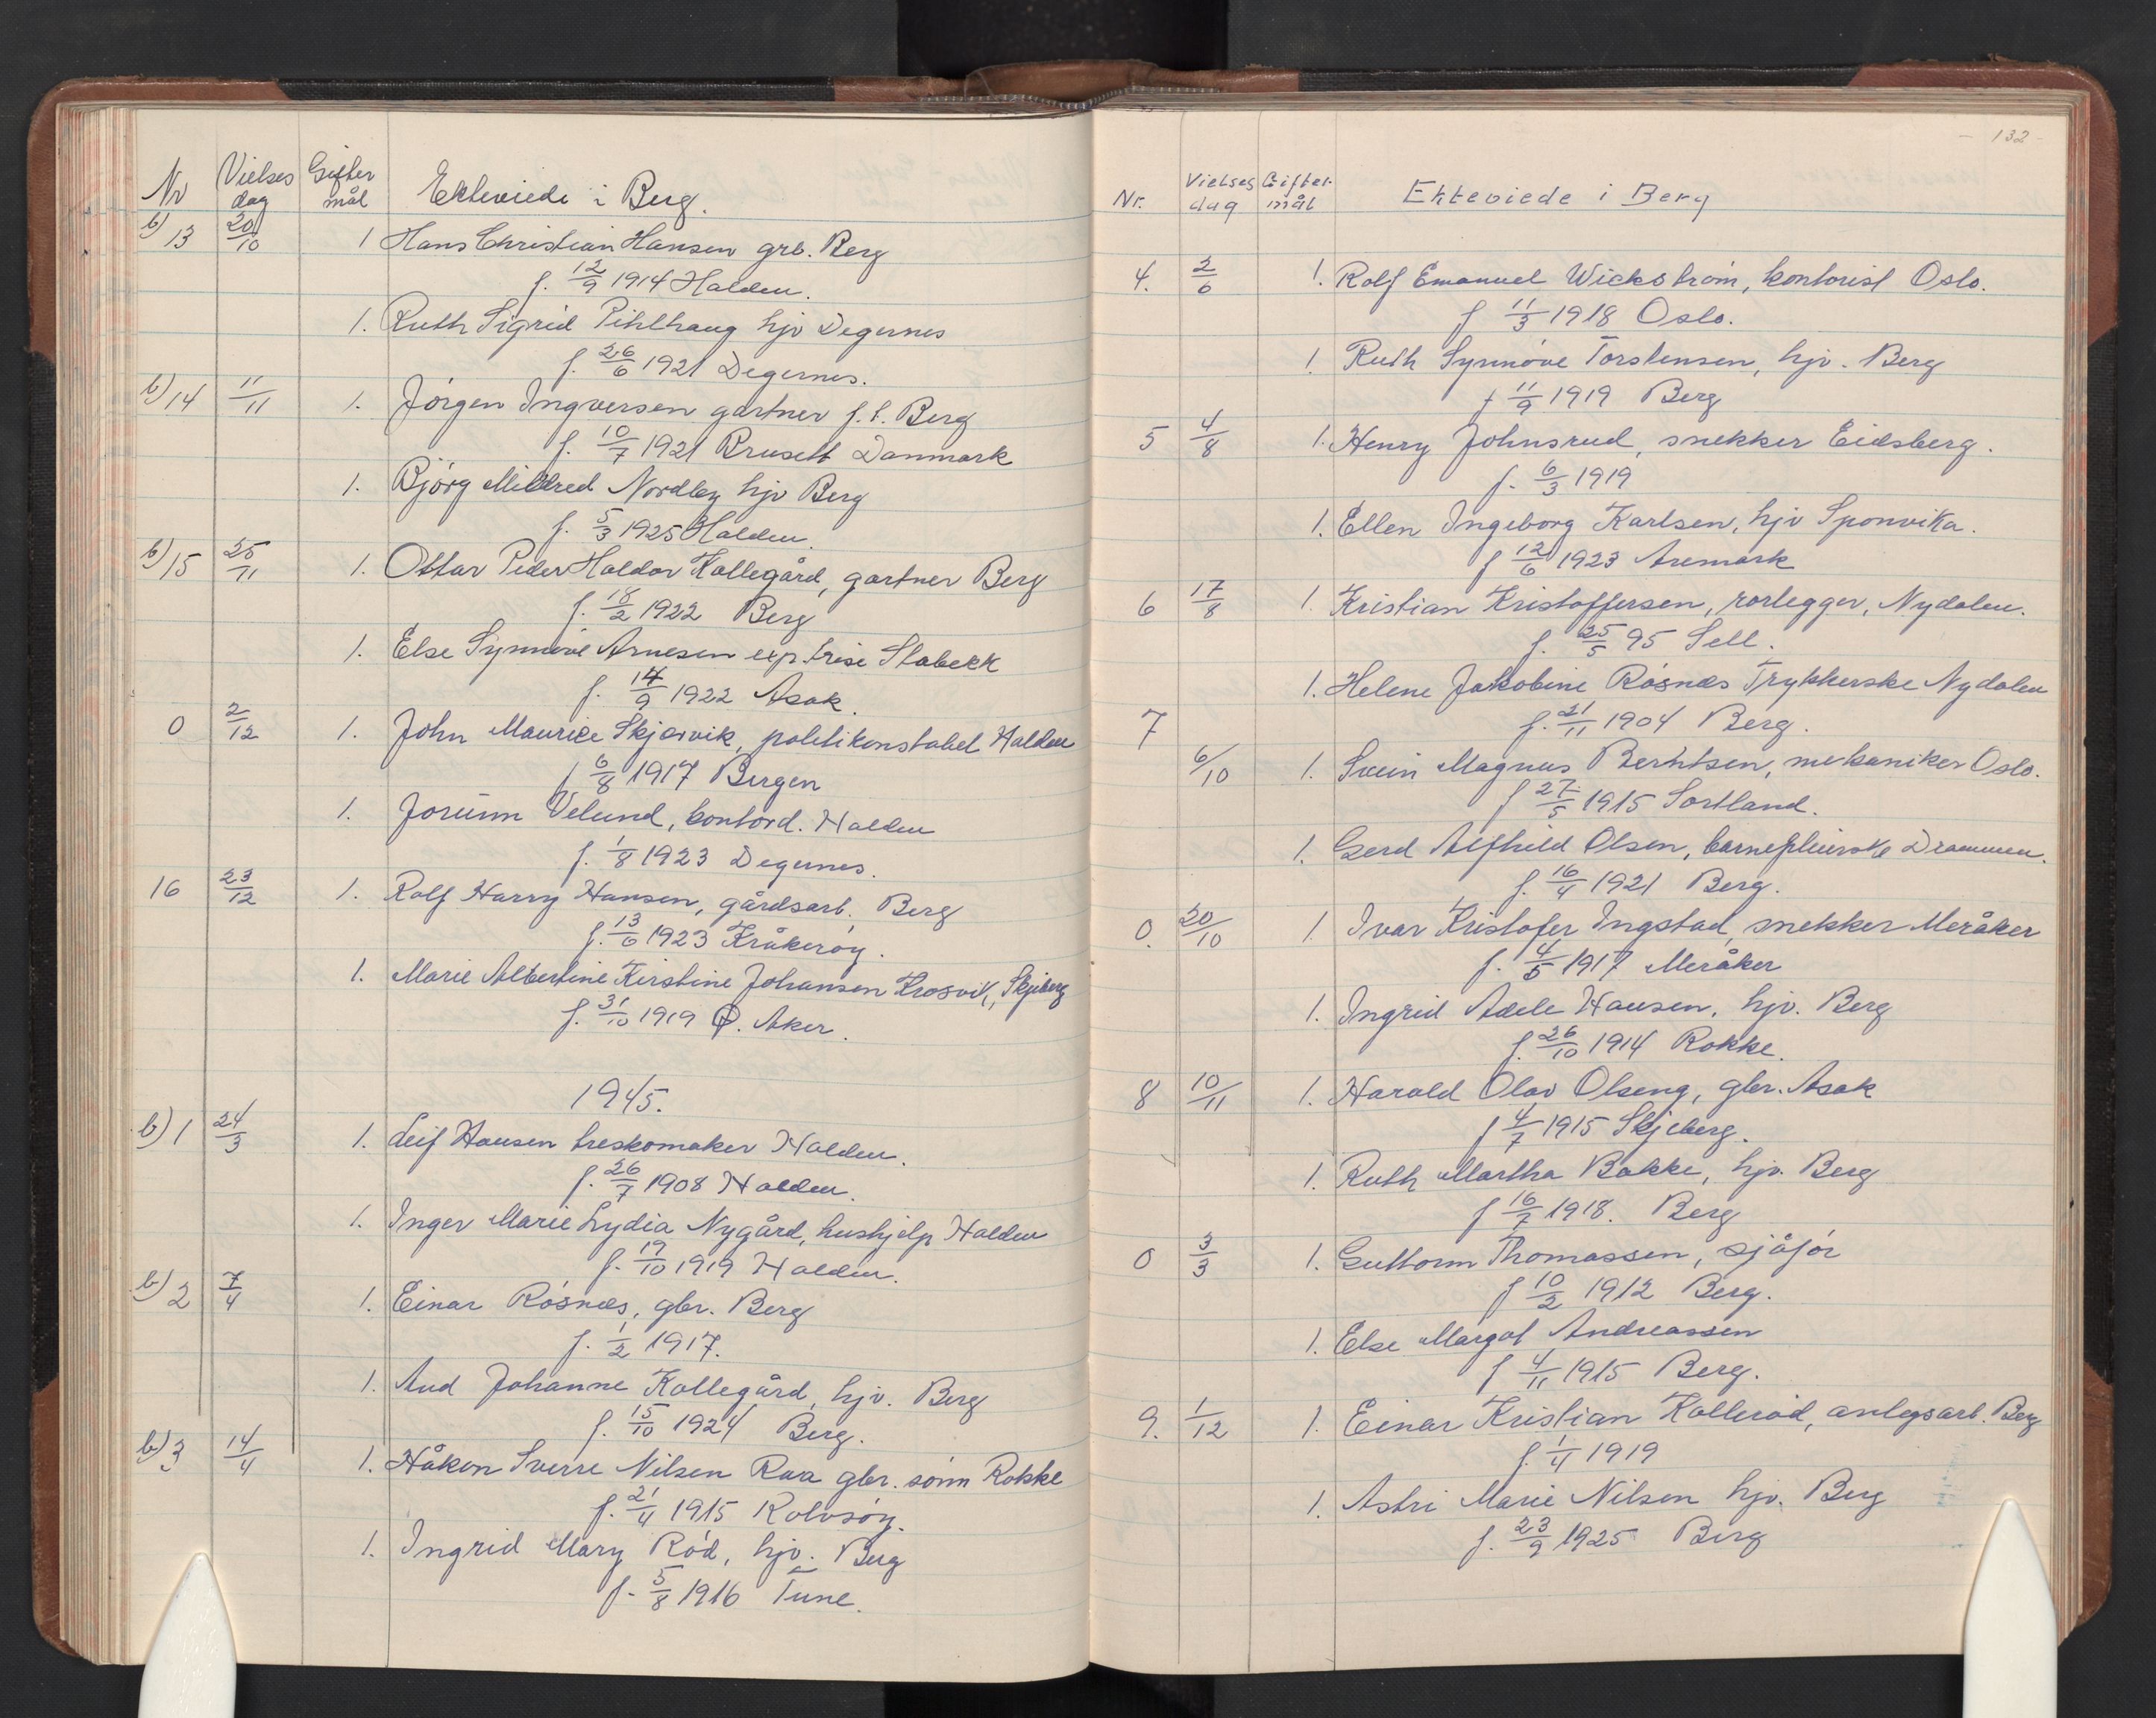 Nr Vielses dag Gifter mål Ekteviede i Berg.
b) 13 20/10 1 Hans Christian Hansen grb. Berg
f. 12/9 1914 Halden.
1. Ruth Sigrid Pihlhaug hjv Degernes
f. 26/6 1921 Degernes.
b) 14 11/11 1. Jörgen Ingversen gartner f.t. Berg
f. 10/7 1921 Danmark
1. Björg Mildred Nordby hjv Berg
f. 5/3 1925 Halden.
b) 15 25/11 1. Ottar Peder Haldor Kallegård, gartner Berg
f. 18/2 1922 Berg
1. Else Synnöve Arnesen exp.trise Stabekk
f. 14/9 1922 Asak.
0 2/12 1. John Maurice Skjærvik, politikonstabel Halden
f 6/8 1917 Bergen
1. Jorunn Velund, kontord. Halden
f. 1/8 1923 Degernes.
16 23/12 1. Rolf Harry Hansen, gårdsarb. Berg
f. 13/6 1923 Kråkeröy.
1. Marie Albertine Kirstine Johansen Krosvik, Skjeberg
f. 31/10 1919 Ø. Aker.
1945.
b) 1 24/3 1. Leif Hansen treskomaker Halden.
f. 26/7 1908 Halden.
1. Inger Marie Lydia Nygård, hushjelp Halden
f. 19/10 1919 Halden.
b) 2 7/4 1. Einar Rösnæs, gbr. Berg
f. 1/2 1917.
1. Aud Johanne Kallegård, hjv. Berg
f. 15/10 1924 Berg.
b) 3 14/4 1. Håkon Sverre Nilsen Raa gbr. sönn Rokke
f. 21/4 1915 Rolvsöy.
1. Ingrid Mary Röd, hjv. Berg
f. 5/8 1916 Tune.
132
Nr. Vielses dag Gifter mål Ekteviede i Berg
4. 2/6 1. Rolf Emanuel Wickström, kontorist Oslo.
f 11/3 1918 Oslo.
1 Ruth Synnöve Torstensen, hjv. Berg
f 11/9 1919 Berg
5 4/8 1. Henry Johnsrud, snekker Eidsberg.
f. 6/3 1919
1. Ellen Ingeborg Karlsen, hjv Sponvika.
f 12/6 1923 Aremark
6 17/8 1. Kristian Kristoffersen, rörlegger, Nydalen.
f. 25/5 95 Sell.
1. Helene Jakobine Rösnæs Trykkerske Nydalen
7 f. 21/11 1904 Berg.
6/10 1. Svein Magnus Berntsen, mekaniker Oslo.
f 27/5 1915 Sortland.
1. Gerd Alfhild Olsen, barnepleierske Drammen.
f. 16/4 1921 Berg.
0. 20/10 1. Ivar Kristofer Ingstad, snekker Meråker
f. 4/5 1917 Meråker
1. Ingrid Adele Hansen, hjv. Berg
f. 26/10 1914 Rokke.
8 10/11 1. Harald Olav Olseng, gbr. Asak
f 4/7 1915 Skjeberg.
1. Ruth Martha Bakke, hjv. Berg
f 16/7 1918. Berg
0 3/3 1. Guttorm Thomassen, sjåför
f 10/2 1912 Berg.
1. Else Margot Andreassen
f 4/11 1915 Berg.
9. 1/12 1. Einar Kristian Kalleröd, anlegsarb. Berg
f. 1/4 1919
1. Astri Marie Nilsen hjv. Berg
f. 23/9 1925 Berg